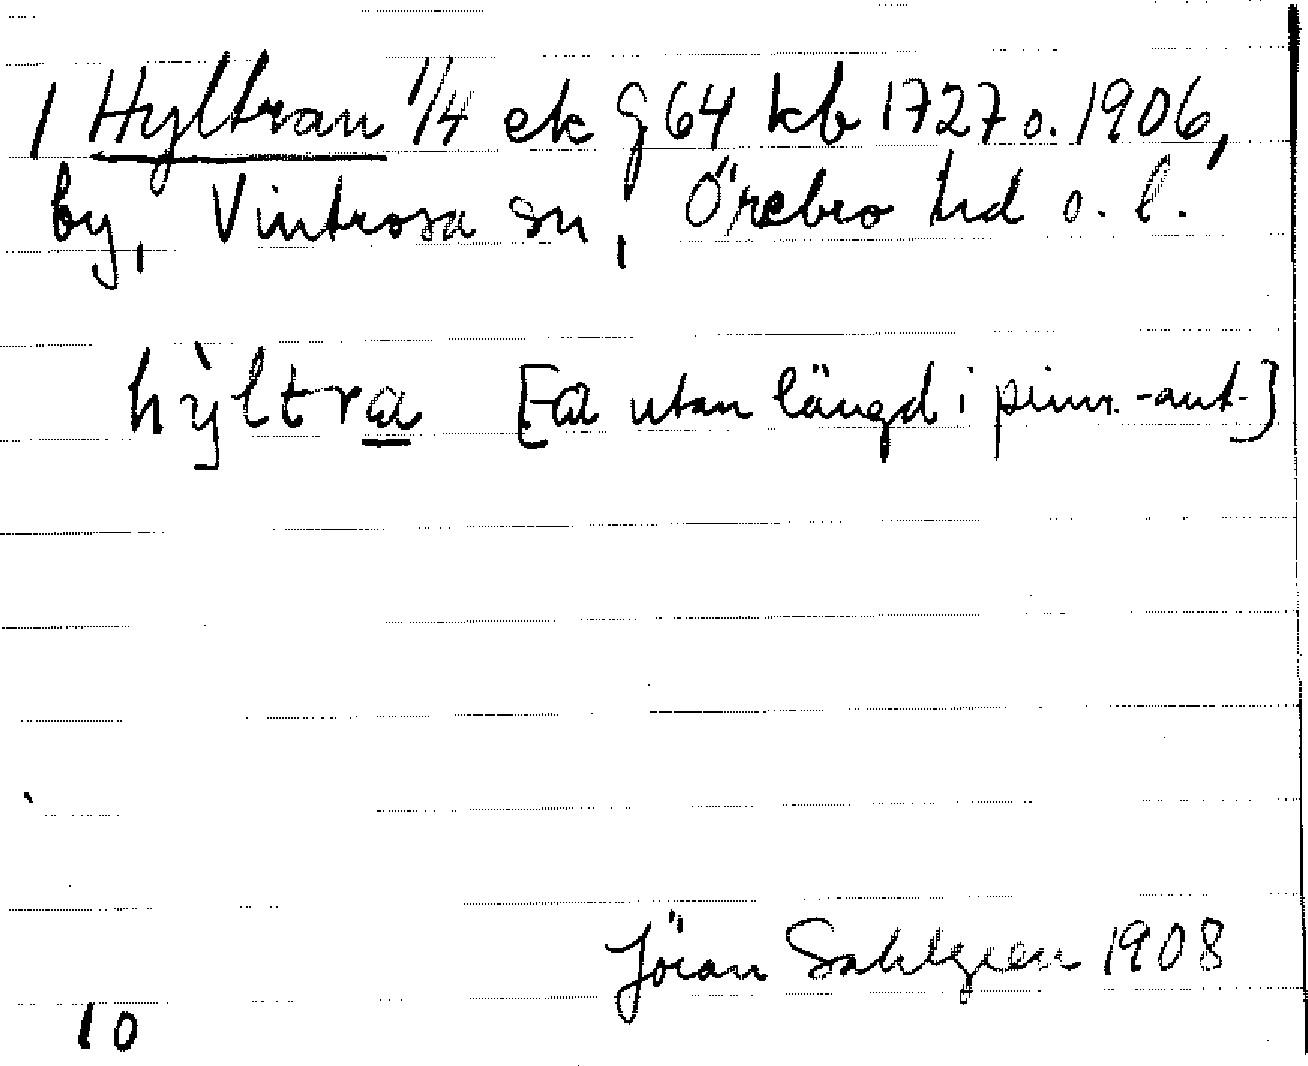 1 Hyltran 1/4 ek g 64 kb 1727 o. 1906,
by, Vintrosa sn, Örebro hd o. l.
hỳltra [-a utan längd i prim.-ant.]
Jöran Sahlgren 1908
10